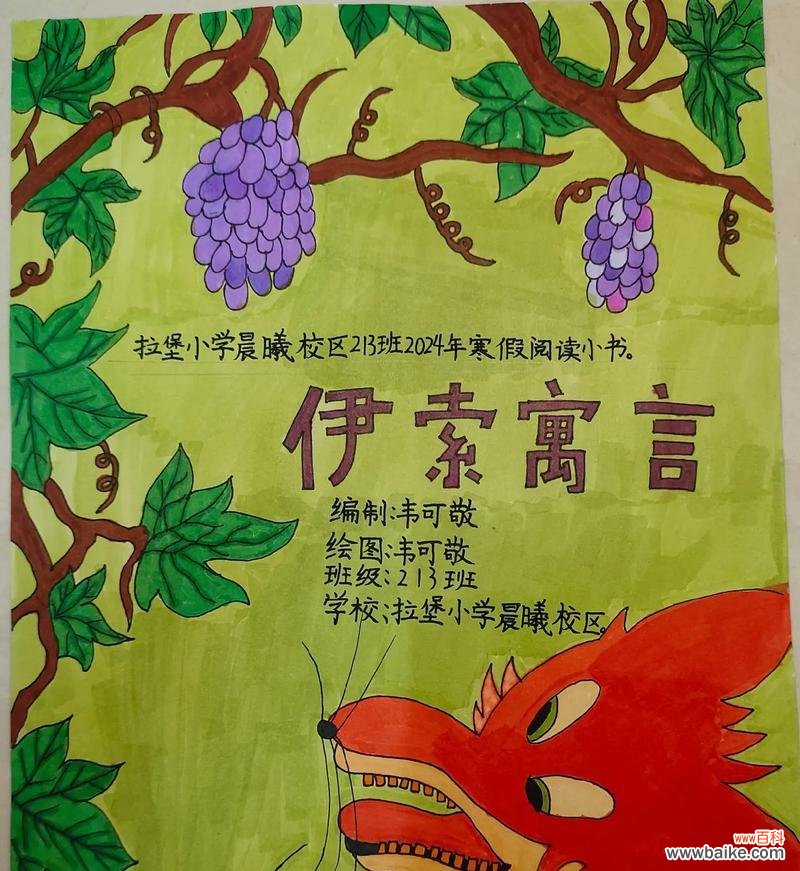 拉堡小学晨曦校区213班2024年寒假阅读小书。
伊索寓言
编制:韦可敬
绘图:韦可敬
班级:213班
学校:拉堡小学晨曦校区。
www百科
www.baike.com